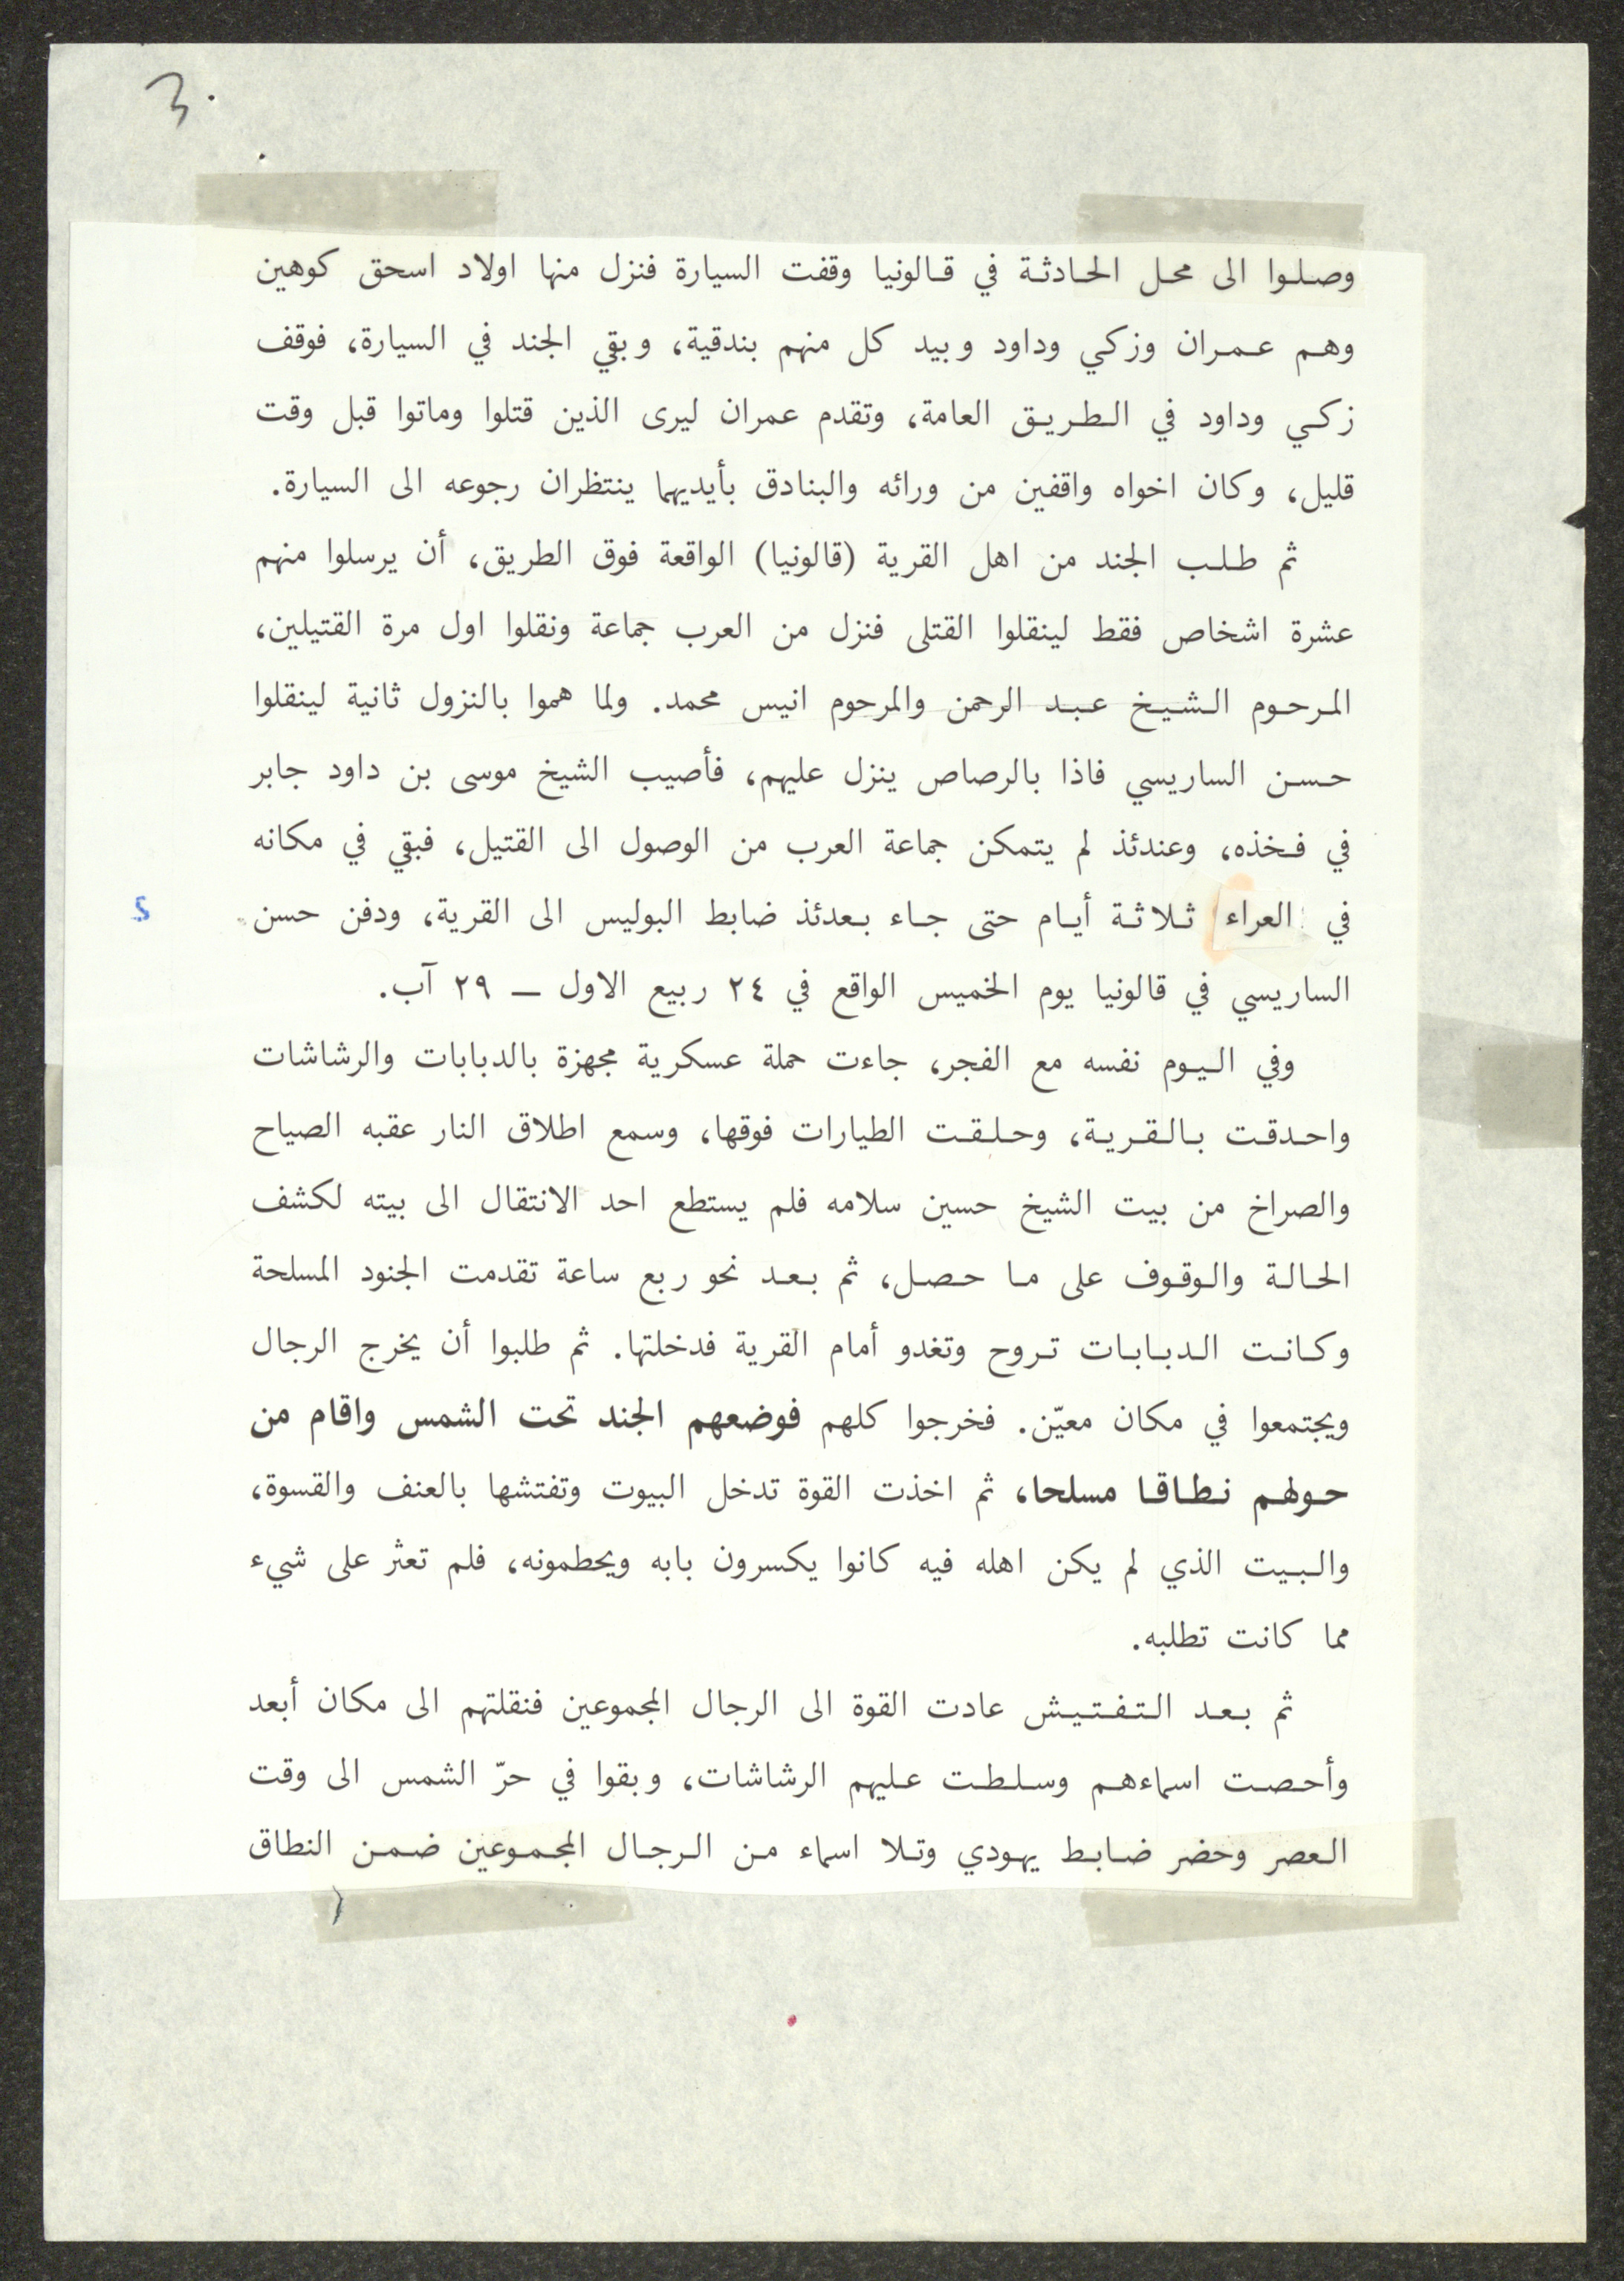 3.
وصلوا الى محل الحادثة في قالونيا وقفت السيارة فنزل منها اولاد اسحق كوهين
وهم عمران وزكي وداود وبيد كل منهم بندقية، وبقي الجند في السيارة، فوقف
زكي وداود في الطريق العامة، وتقدم عمران ليرى الذين قتلوا وماتوا قبل وقت
قليل، وكان اخواه واقفين من ورائه والبنادق بأيديهما ينتظران رجوعه الى السيارة.
ثم طلب الجند من اهل القرية (قالونيا) الواقعة فوق الطريق، أن يرسلوا منهم
عشرة اشخاص فقط لينقلوا القتلى فنزل من العرب جماعة ونقلوا اول مرة القتيلين،
المرحوم الشيخ عبد الرحمن والمرحوم انيس محمد. ولما هموا بالنزول ثانية لينقلوا
حسن الساريسي فاذا بالرصاص ينزل عليهم، فأصيب الشيخ موسى بن داود جابر
في فخذه، وعندئذ لم يتمكن جماعة العرب من الوصول الى القتيل، فبقي في مكانه
في العراء ثلاثة أيام حتى جاء بعدئذ ضابط البوليس الى القرية، ودفن حسن
الساريسي في قالونيا يوم الخميس الواقع في ٢٤ ربيع الاول — ٢٩ آب.
وفي اليوم نفسه مع الفجر، جاءت حملة عسكرية مجهزة بالدبابات والرشاشات
واحدقت بالقرية، وحلقت الطيارات فوقها، وسمع اطلاق النار عقبه الصياح
والصراخ من بيت الشيخ حسين سلامه فلم يستطع احد الانتقال الى بيته لكشف
الحالة والوقوف على ما حصل، ثم بعد نحو ربع ساعة تقدمت الجنود المسلحة
وكانت الدبابات تروح وتغدو أمام القرية فدخلتها. ثم طلبوا أن يخرج الرجال
ويجتمعوا في مكان معيّن. فخرجوا كلهم فوضعهم الجند تحت الشمس واقام من
حولهم نطاقا مسلحا، ثم اخذت القوة تدخل البيوت وتفتشها بالعنف والقسوة،
والبيت الذي لم يكن اهله فيه كانوا يكسرون بابه ويحطمونه، فلم تعثر على شيء
مما كانت تطلبه.
ثم بعد التفتيش عادت القوة الى الرجال المجموعين فنقلتهم الى مكان أبعد
وأحصت اسماءهم وسلطت عليهم الرشاشات، وبقوا في حرّ الشمس الى وقت
العصر وحضر ضابط يهودي وتلا اسماء من الرجال المجموعين ضمن النطاق